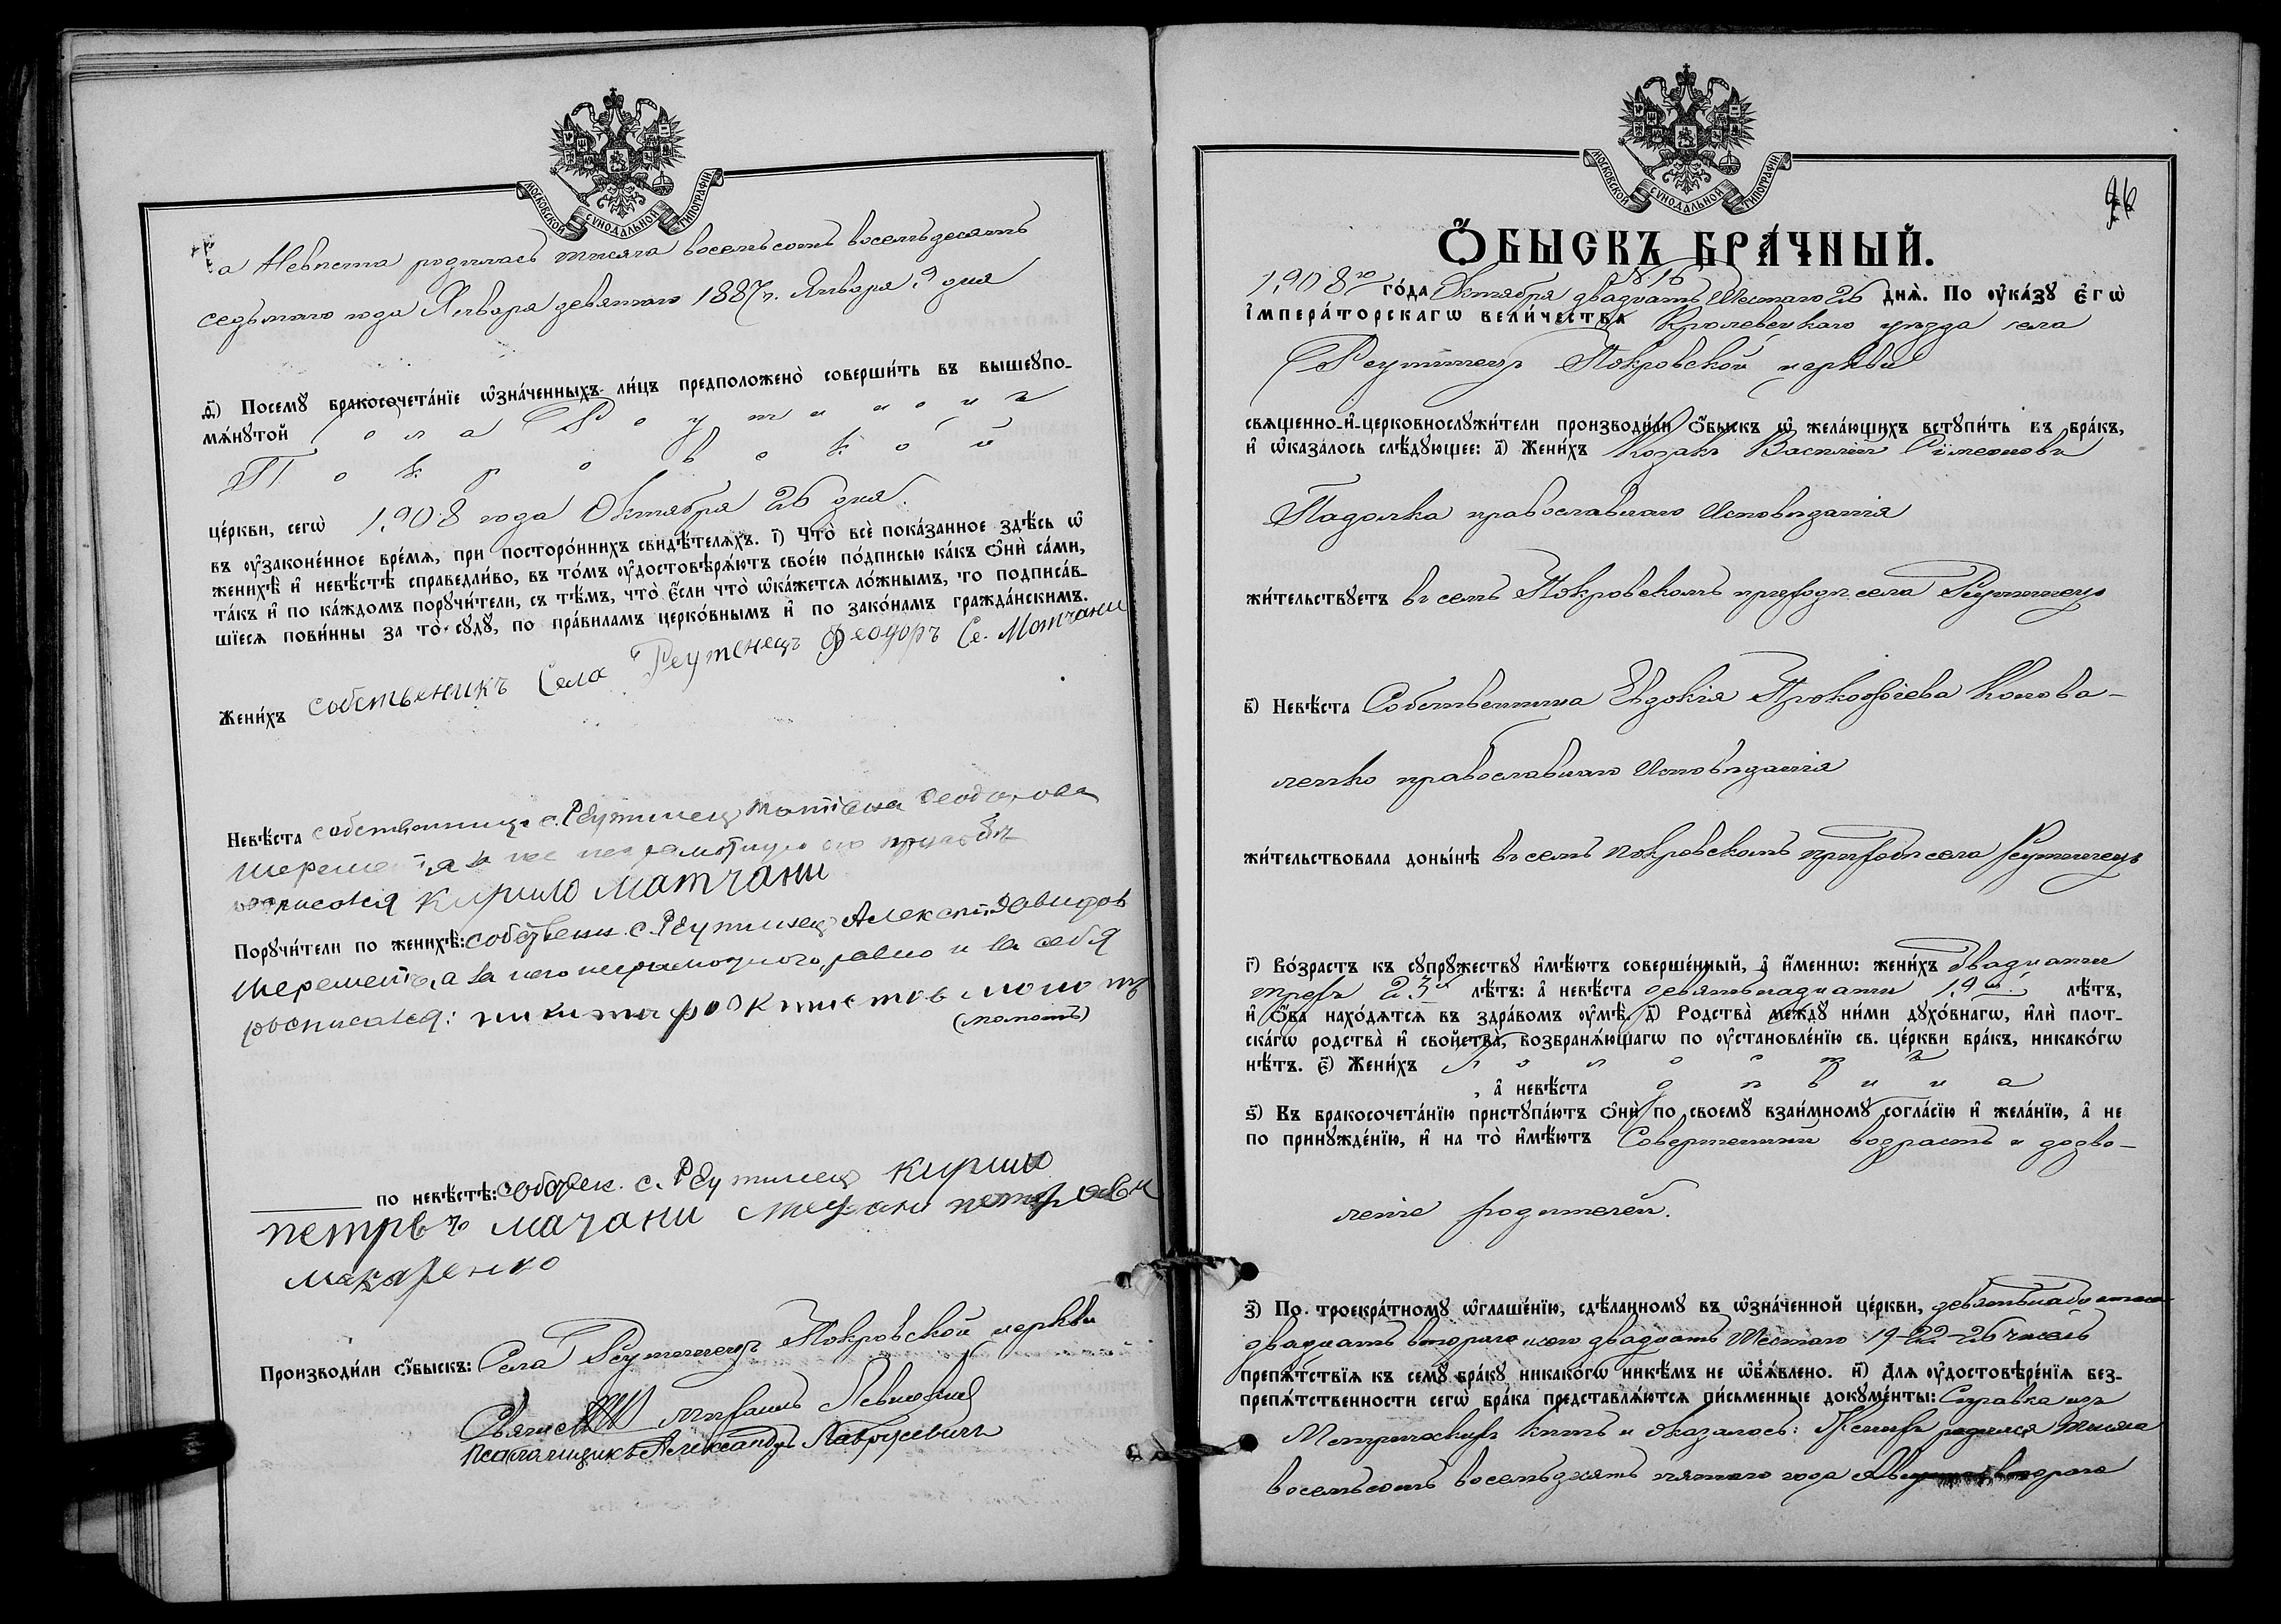 МОСКОВСКОЙ СѴНОДАЛЬНОЙ ТИПОГРАФІИ
а Невѣста родилась тысяча восемьсотъ восемьдесятъ
седьмого года Января девятаго 1887 г. Января 9 дня
д҃і) Посемꙋ бракосочета́нїе ѡ҆зна́ченныхъ ли́цъ предположено̀ соверши́ть въ вышеꙋпо-
мѧ́нꙋтой села Реутинецъ
Покровской
це́ркви, сегѡ̀ 1908 года Октября 26 дня.
въ ᲂу҆законе́нное вре́мѧ, при посторо́ннихъ свидѣ́телѧхъ. і҃) Что̀ всѐ пока́занное здѣ́сь ѡ҆
женихѣ̀ и҆ невѣ́стѣ справедли́во, въ то́мъ ᲂу҆достовѣрѧ́ютъ свое́ю по́дписью ка́къ ѻ҆нѝ са́ми,
та́къ и҆ по ка́ждомъ порꙋчи́тели, съ тѣ́мъ, что̀ є҆́сли что̀ ѡ҆ка́жется ло́жнымъ, то подписа́в-
шїесѧ пови́нны за то̀ сꙋдꙋ, по пра́виламъ церко́внымъ и҆ по зако́намъ гражда́нскимъ.
Жени́хъ собственикъ Села Реутенецъ Феодоръ Се. Мотчани
Невѣ́ста собственница с. Реутинец Татіана Феодорова
Шеремет а за нее неграмотную
росписался Кирило Матчани
Порꙋчи́тели по женихѣ̀: собствен. с. Реутинец Алексѣй Давидов
Шеремета, а за него неграмотного, равно и за себя
росписался: никита момотъ
(мамотъ)
по невѣ́стѣ: собствен. с. Реутинец Кирило
петрвъ мачани стефанъ петровъ
макаренко
Производи́ли ѻ҆́быскъ: Села Реутинецъ Покровской церкви
Священ. Михаилъ Левицкій
Псаломщикъ Александръ Лаврусевичъ
МОСКОВСКОЙ СѴНОДАЛЬНОЙ ТИПОГРАФІИ
Ѻ҆́БЫСКЪ БРА́ЧНЫЙ.
№ 16
1908го го́да Октября двадцать Шестаго 26 днѧ̀. По ᲂу҆ка́зꙋ є҆гѡ̀
і҆мпера́торскагѡ вели́чества Кролевецкаго уѣзда села
Реутинецъ Покровской церкви
свѧщенно-и҆-церковнослꙋжи́тели производи́ли ѻ҆́быскъ ѡ҆ жела́ющихъ встꙋпи́ть въ бра́къ,
и҆ ѡ҆каза́лось слѣ́дꙋющее: а҃) Жени́хъ Козакъ Василій Сімеоновъ
Падалка православнаго Исповѣданія
жи́тельствꙋетъ въ семъ Покровскомъ приходѣ села Реутинецъ
в҃) Невѣ́ста Собственница Евдокія Прокофіева Конова-
ленко православнаго Исповѣданія
жи́тельствовала доны́нѣ въ семъ Покровскомъ приходѣ села Реутинецъ
г҃) Во́зрастъ къ сꙋпрꙋ́жествꙋ и҆мѣ́ютъ соверше́нный, а҆ и҆́меннѡ: жени́хъ двадцати
трехъ 23 лѣ́тъ: а҆ невѣ́ста девятьнадцати 19 лѣ́тъ,
и҆ ѻ҆́ба нахо́дѧтсѧ въ здра́вомъ ᲂу҆мѣ̀. д҃) Родства̀ междꙋ̀ ни́ми дꙋхо́внагѡ, и҆́ли плот-
ска́гѡ родства̀ и҆ свойства̀, возбранѧ́ющагѡ по ᲂу҆становле́нїю св. це́ркви бра́къ, никако́гѡ
нѣ́тъ. є҃) Жени́хъ холостъ
, а҆ невѣ́ста дѣвица
ѕ҃) Къ бракосочета́нїю пристꙋпа́ютъ ѻ҆нѝ по своемꙋ̀ взаи́мномꙋ согла́сїю и҆ жела́нїю, а҆ не
по принꙋжде́нїю, и҆ на то̀ и҆мѣ́ютъ Совершенный возрастъ и дозво-
леніе родителей.
з҃) По троекра́тномꙋ ѡ҆глаше́нїю, сдѣ́ланномꙋ въ ѡ҆зна́ченной це́ркви, девятьнадцатаго
двадцать второго и двадцать Шестаго 19-22-26 числъ
препѧ́тствїѧ къ семꙋ̀ бра́кꙋ никако́гѡ никѣ́мъ не ѡ҆б̾ѧ́влено. и҃) Длѧ ᲂу҆достовѣре́нїѧ без-
препѧ́тственности сегѡ̀ бра́ка представлѧ́ютсѧ пи́сьменные докꙋме́нты: Справка изъ
Метрическихъ книгъ и оказалось: Женихъ родился тысяча
восемьсотъ восемьдесятъ пятаго года Августа второго